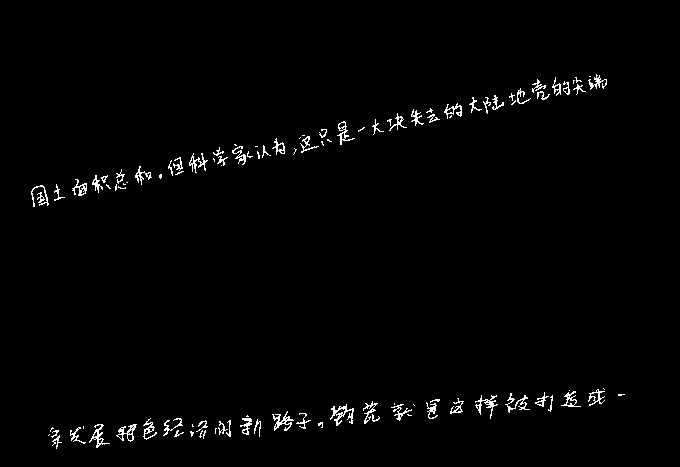 国土面积总和。但科学家认为,这只是一大块失去的大陆地壳的尖端
条发展特色经济的新路子。就是这样被打造成一